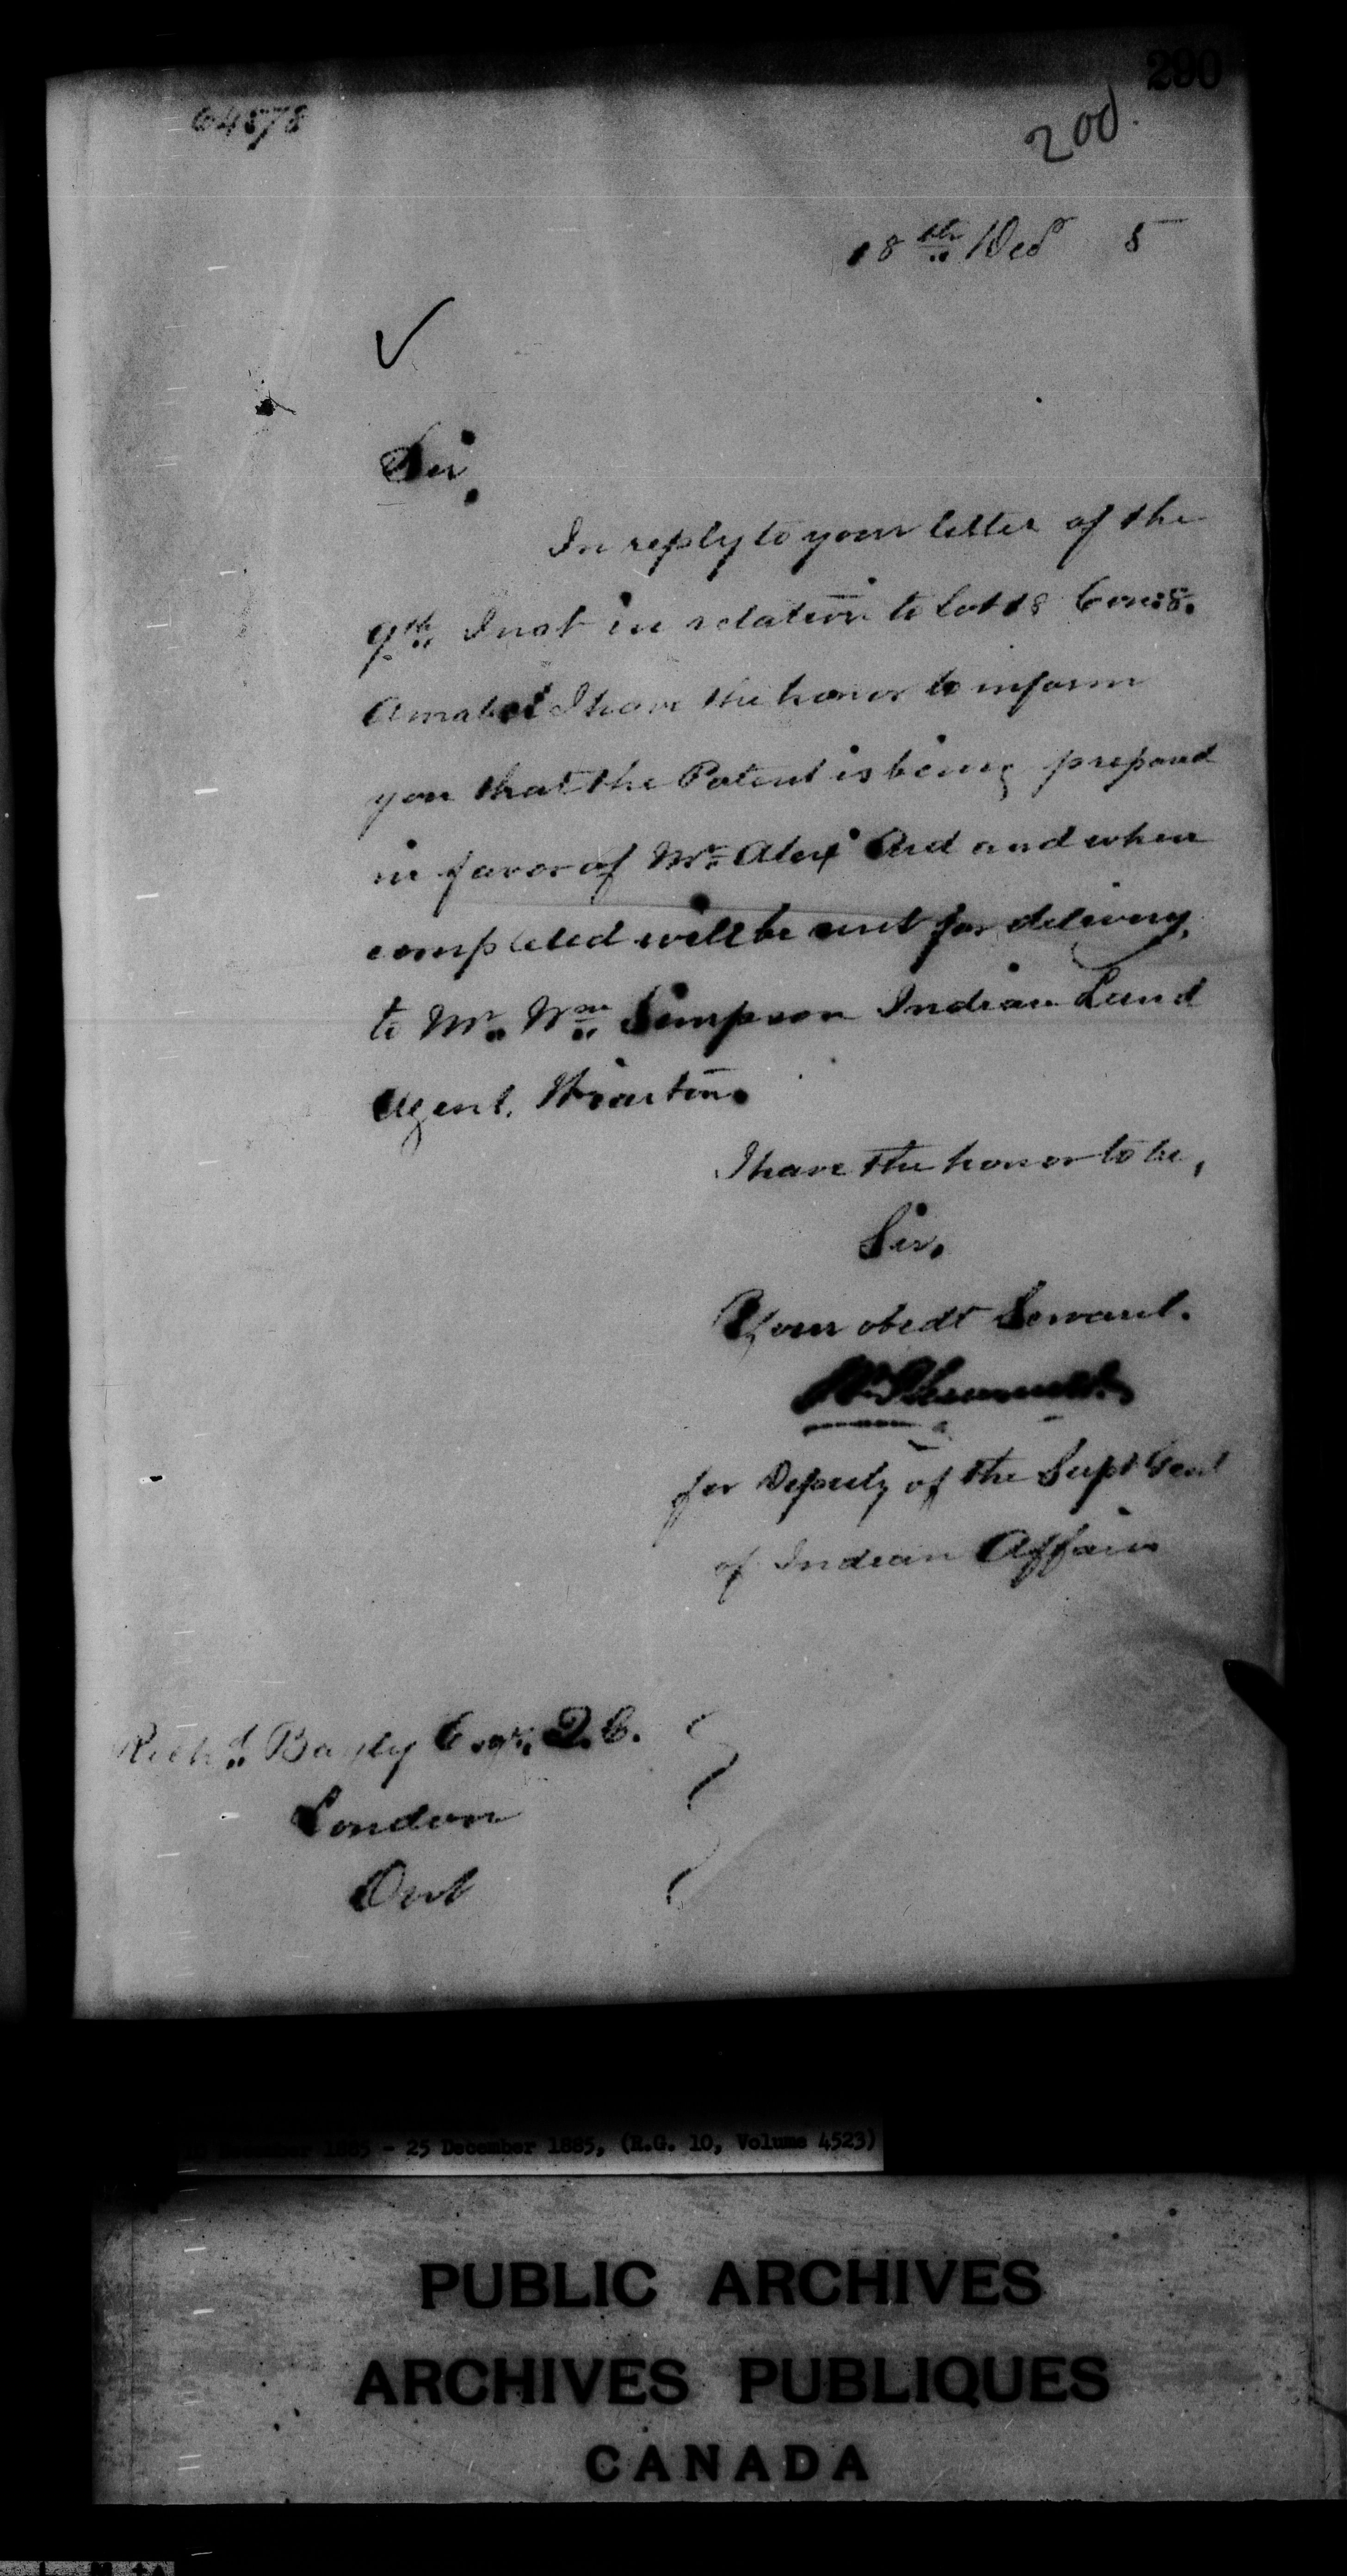 290
64578
200.
18th Decr 5
Sir,
In reply to your letter of the
9th Inst in relation to Lot 18 Con: 8.
Amabel I have the honor to inform
you that the Patent is being prepared
in favor of Mr. Alex Ard and when
completed will be sent for delivery,
to Mr. Wm. Simpson Indian Land
Agent, Wiarton.
I have the honor to be,
Sir,
Your obedt Servant.
for Deputy of the Supt Genl
of Indian Affairs
Richd. Bayly Esqr. Q.C.
London
Ont
1885 - 25 December 1885, (R.G. 10, Volume 4523)
PUBLIC ARCHIVES
ARCHIVES PUBLIQUES
CANADA